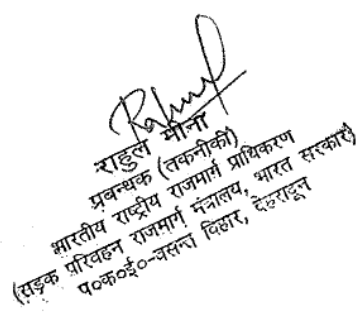 राहुल मीना
प्रबन्धक (तकनीकी)
भारतीय राष्ट्रीय राजमार्ग प्राधिकरण
(सड़क परिवहन राजमार्ग मंत्रालय, भारत सरकार)
प०क०ई०-वसन्त विहार, देहरादून